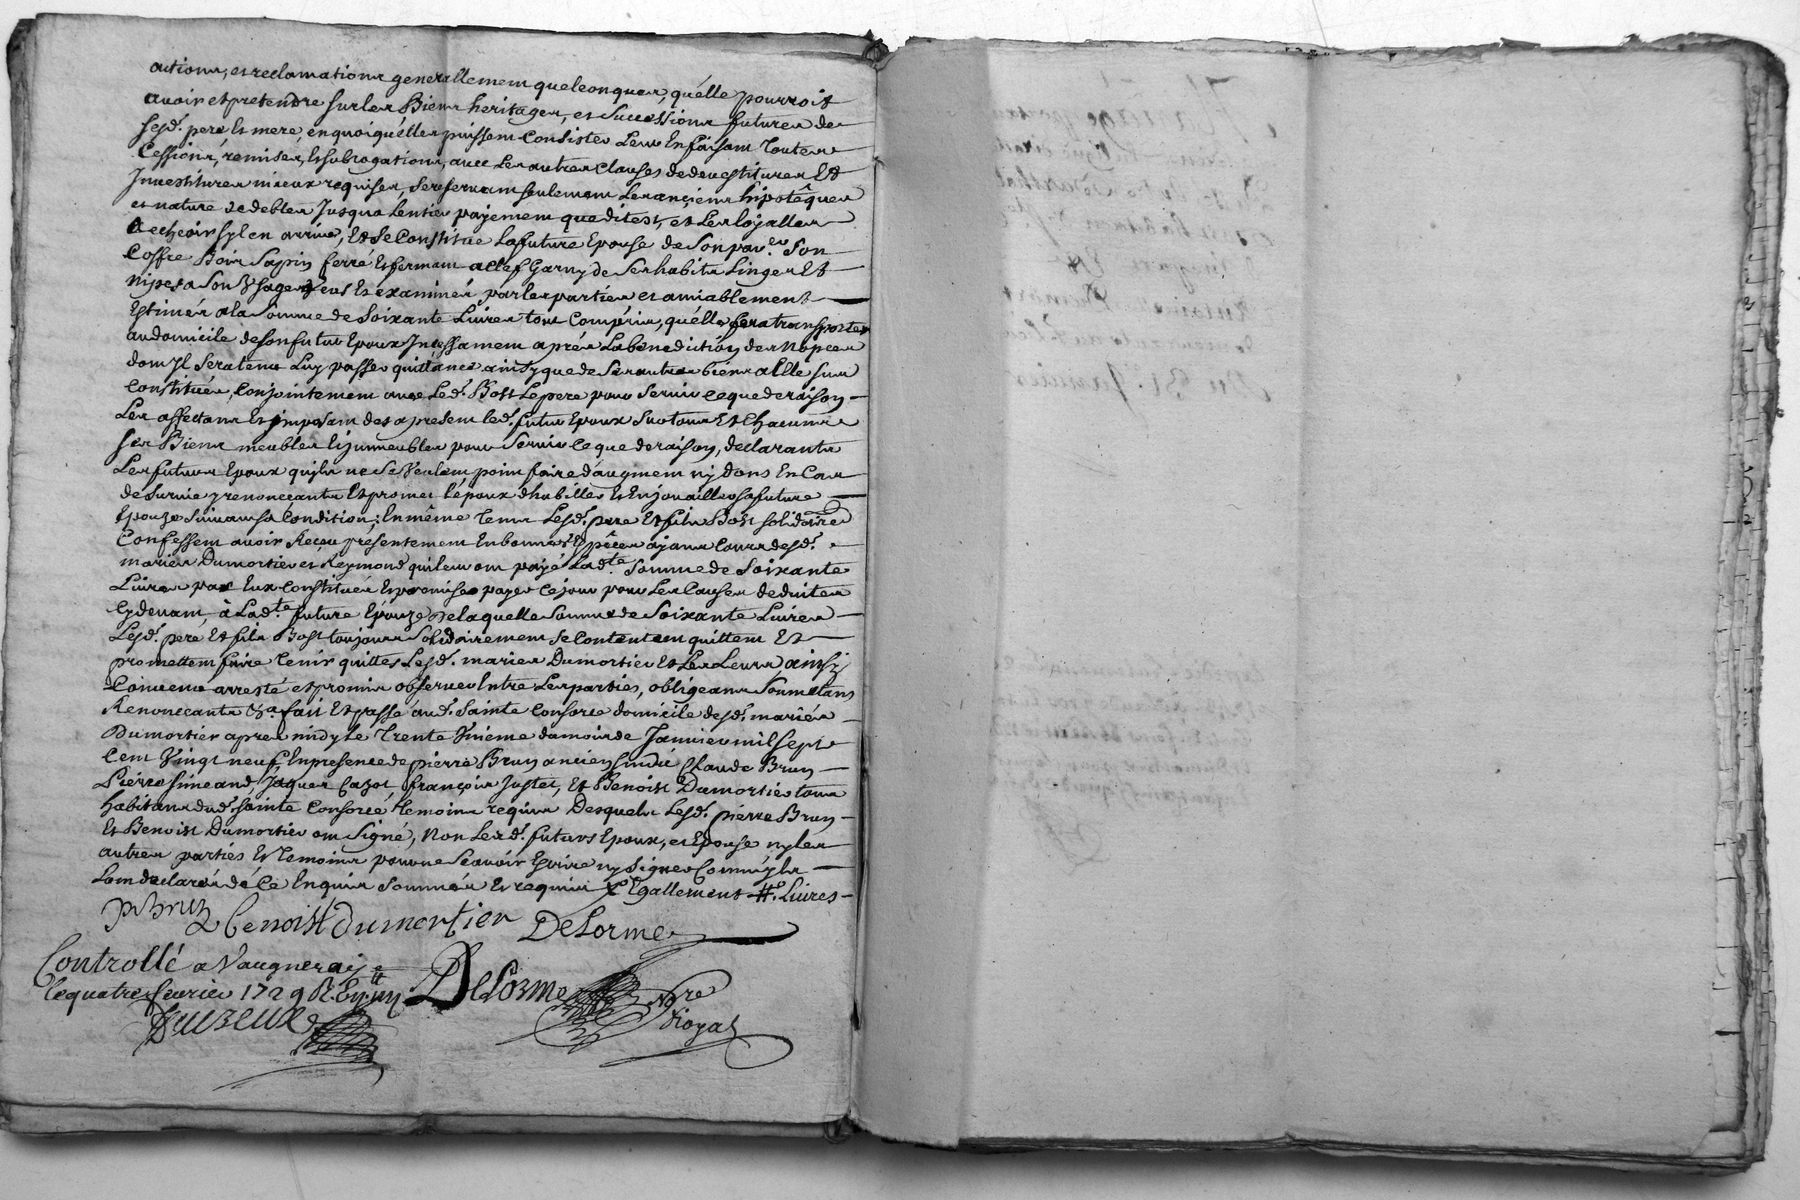 actions, et reclamations generallement quelconques, qu'elle pourroit
avoir et pretendre sur les Biens heritages, et successions futures de
sesd. pere et mere, en quoi qu'elles puissent consister Leur En faisant Toutes
Cessions, remises, Et subrogations, avec Les autres clauses de devestitures Et
Investitures mieux requises, se reservant seulement Les anciens hipotêques
et nature de debtes Jusqua Lentier payement que dit est, et Les loyalles
Echeoir sylen arrive, Et se Constitue La future Epouse de son par.er Son
Coffre Bois Sapin ferré Et fermant a clef Garny de Ses habits Linges Et
nipes a Son Usage veus Et examinés par les parties et amiablement
Estimés a la Somme de Soixante Livres tout Compris, qu'elle fera transporter
au domicile de son futur Epoux Incessament aprés La benediction des Nopces
dont Il Sera tenu Luy passer quittance ainsy que de Ses autres biens a Elle sus
Constitués, Conjointement avec Led. Bost Le pere pour Servir ce que de raison
Les affectans Et imposant des a present led. futur Epoux Sur tous Et Chacuns
ses Biens meubles Et immeubles pour Servir ce que de raison, declarants
Les futurs Epoux quils ne Se Veulent point faire d'augment ny dons En Cas
de Survie y renonceants Et promet l'époux d'habiller Et Enjouailler sa future
Epouze Suivant sa Condition; En même Tems Lesd. pere Et fils Bost solidaire
Confessent avoir Receu presentement En bonnes Espèces ayant Cours desd.
mariés Dumortier et Reymond qui leur ont payé Lad.te Somme de Soixante
Livres par Eux Constituée Et promise payer Ce jour pour Les Causes deduites
Cy devant, à Lad.te future Epouze De laquelle Somme de Soixante Livres
Lesd. pere Et fils Bost toujours Solidairement Se Contentent quittent Et
promettent faire Tenir quittes Lesd. mariés Dumortier Et Les Leurs ainsi
Convenu arresté et promis observer Entre Les parties, obligeans Soumetans
Renonceants &a fait Et passé aud. Sainte Consorce domicile desd. mariés
Dumortier apres midy Le Trente Unieme du mois de Janvier mil Sept
Cent Vingt neuf, En presence de pierre Brun ancien sindic Claude Brun
Pierre simeand, Jaques Cazot, françois Juster, Et Benoist Dumortier tous
habitans dud. Sainte Consorce Temoins requis Desquels Lesd. pierre Brun
Et Benoist Dumortier ont Signé, Non Lesd. futurs Epoux, et Epouse ny les
autres parties Et Temoins pour ne Scavoir Ecrire ny Signer Comm'ils
Lont declaré de Ce Enquis Sommés Et requis Egallement Livres
P Brun Benoist dumortier DeLorme
Controllé a Vaugneray
le quatre fevrier 1729 DeLorme No.re
Royal